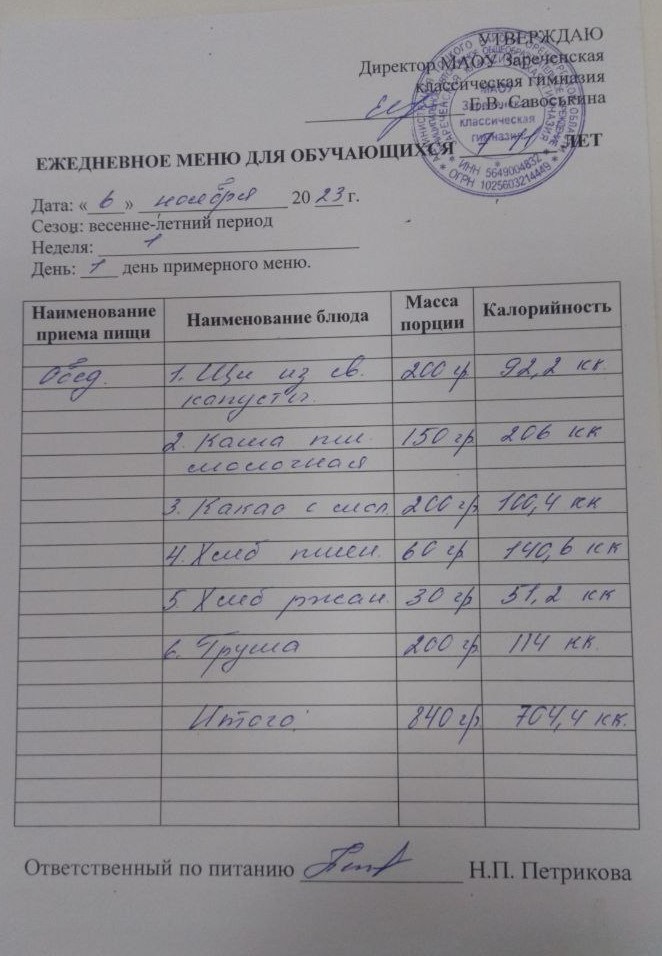 УТВЕРЖДАЮ
Директор МАОУ Зареченская
классическая гимназия
Г.В. Савоськина
МАОУ
Зареченская
классическая
гимназия
* ИНН 5649004832 *
* ОГРН 1025603214449 *
ЕЖЕДНЕВНОЕ МЕНЮ ДЛЯ ОБУЧАЮЩИХСЯ 7-11 ЛЕТ
Дата: «6» ноября 2023 г.
Сезон: весенне-летний период
Неделя: 1
День: 1 день примерного меню.
Наименование приема пищи Наименование блюда Масса порции Калорийность
Обед. 1. Щи из св. 200 гр 92,2 кк.
капусты.
2. Каша пш. 150 гр 206 кк
молочная
3. Какао с мол. 200 гр 100,4 кк
4. Хлеб пшен. 60 гр 140,6 кк
5. Хлеб ржан. 30 гр 51,2 кк
6. Груша 200 гр 114 кк.
Итого: 840 гр 704,4 кк.
Ответственный по питанию Н.П. Петрикова